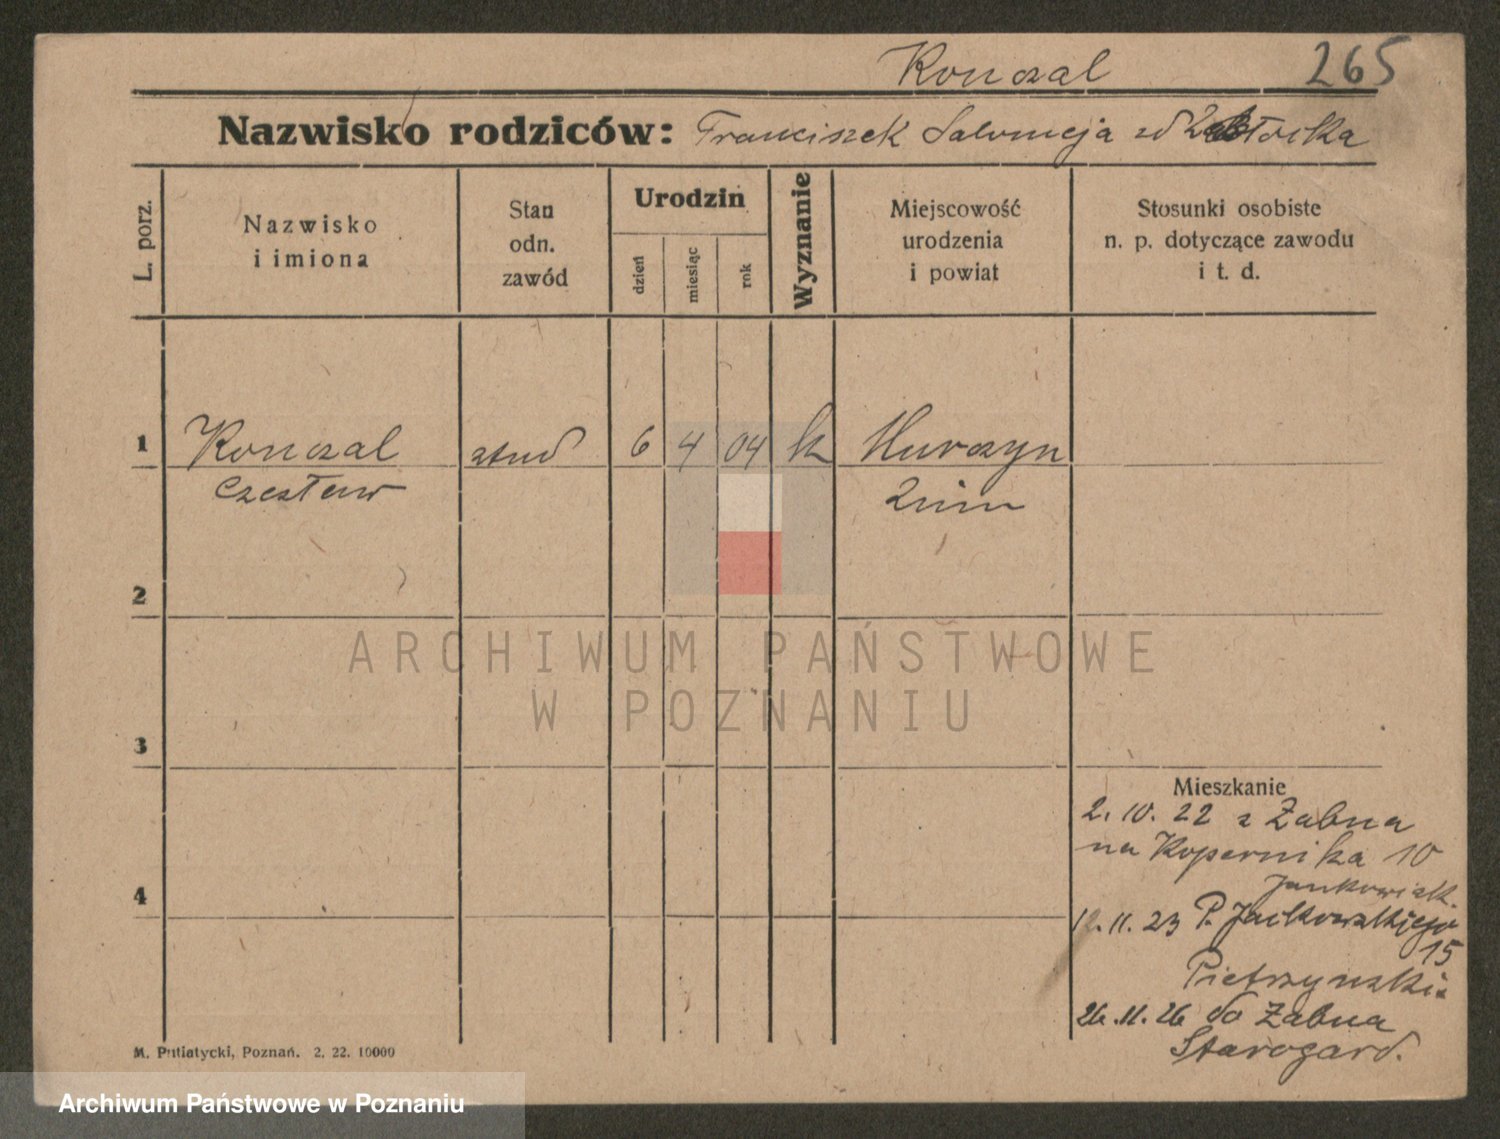 Konczal 265
Nazwisko rodziców: Franciszek Salomeja zd
L. porz.
Nazwisko
i imiona
Stan
odn.
zawód
Urodzin
dzień
miesiąc
rok
Wyznanie
Miejscowość
urodzenia
i powiat
Stosunki osobiste
n. p. dotyczące zawodu
i t. d.
1 Konczal stud 6 4 04 k
Czesław Znin
2
3
4
Mieszkanie
2. 10. 22 z Żabna
na Kopernika 10
Jankowiak.
11. 23 P. Jackowskiego
15
Pietrzyński
26. 11. 26 do Żabna
Starogard.
M. Putiatycki, Poznań. 2. 22. 10000
ARCHIWUM PAŃSTWOWE
W POZNANIU
Archiwum Państwowe w Poznaniu